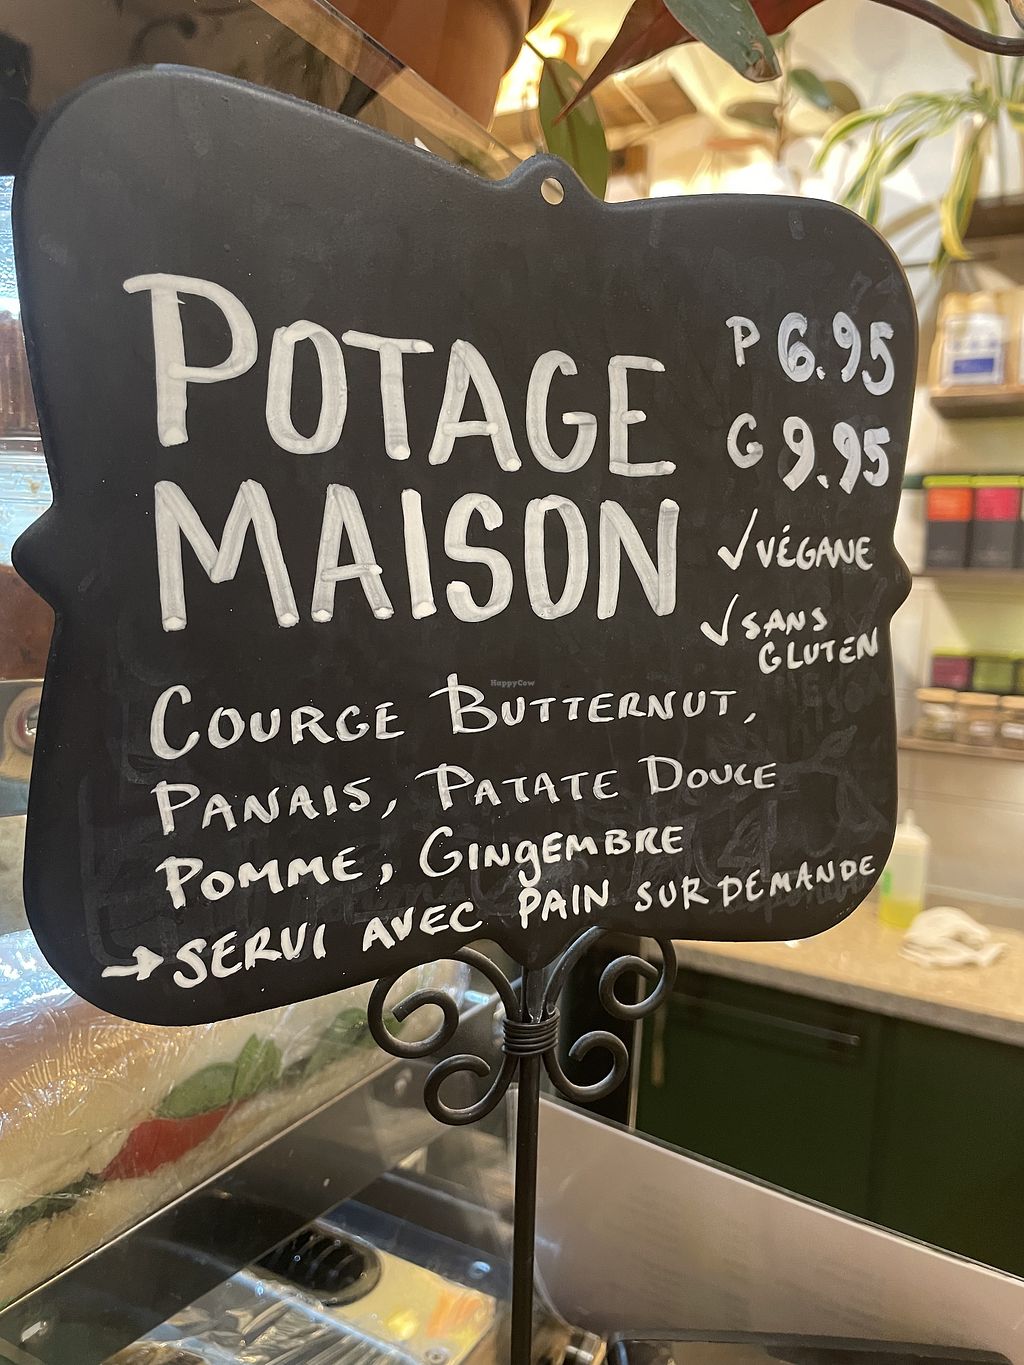 POTAGE
MAISON
P 6.95
G 9.95
✓ VÉGANE
✓ SANS
GLUTEN
COURGE BUTTERNUT,
PANAIS, PATATE DOUCE
POMME, GINGEMBRE
→ SERVI AVEC PAIN SUR DEMANDE
HappyCow